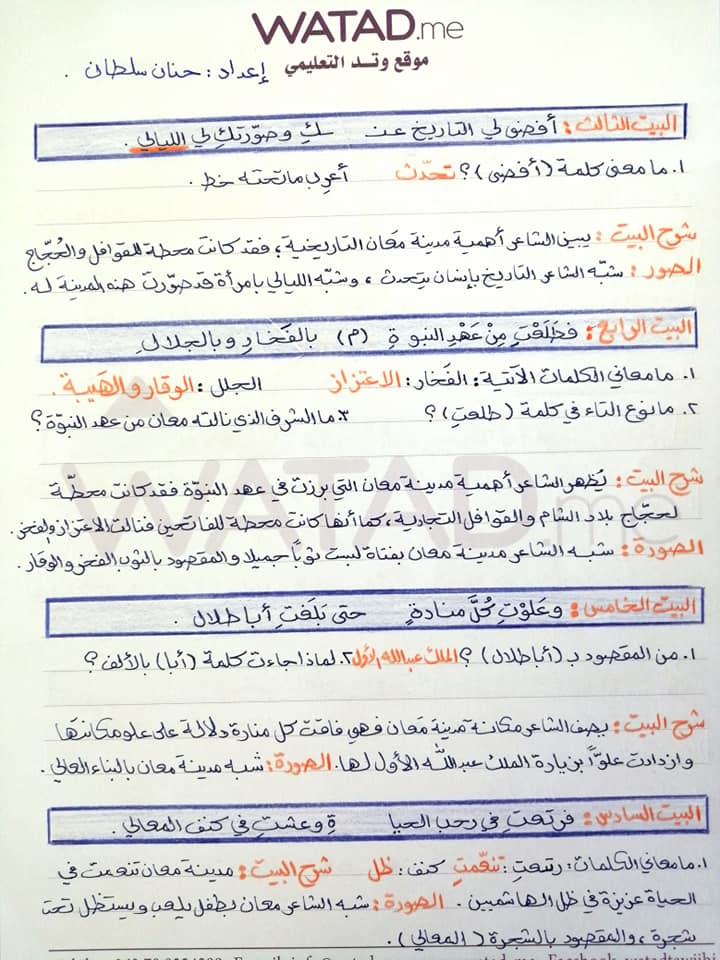 WATAD.me
موقع وتد التعليمي
إعداد : حنان سلطان .
البيت الثالث : أفضى لي التاريخ عنـ ـكِ وصوّرتكِ لي الليالي .
١. ما معنى كلمة (أفضى)؟ تحدّث أعرب ما تحته خط .
شرح البيت : يبين الشاعر أهمية مدينة معان التاريخية ، فقد كانت محطة للقوافل والحُجّاج
الصور : شبّه الشاعر التاريخ بإنسان يتحدث ، وشبّه الليالي بامرأة قد صوّرت هذه المدينة له .
البيت الرابع : فطَلَعْتِ مِنْ عَهْدِ النبوةِ (م) بالفَخارِ وبالجلالِ
١. ما معاني الكلمات الآتية : الفَخار : الاعتزاز الجلل : الوقار والهَيبة .
٢. ما نوع التاء في كلمة (طلعتِ)؟ ٣. ما الشرف الذي نالته معان من عهد النبوّة؟
شرح البيت : يُظهر الشاعر أهمية مدينة معان التي برزت في عهد النبوّة فقد كانت محطّة
لحجّاج بلاد الشام والقوافل التجارية ، كما أنها كانت محطة للفاتحين فنالت الاعتزاز والفخر .
الصورة : شبه الشاعر مدينة معان بفتاة لبست ثوبًا جميلا والمقصود بالثوب الفخر والوقار .
البيت الخامس : وعَلَوْتِ كُلَّ منارةٍ حتى بَلَغتِ أبا طلال .
١. من المقصود بـ (أبا طلال)؟ الملك عبدالله الأول ٢. لماذا جاءت كلمة (أبا) بالألف؟
شرح البيت : يصف الشاعر مكانة مدينة معان فهي فاقت كل منارة دلالة على علو مكانتها
وازدادت علوًّا بزيادة الملك عبدالله الأول لها. الصورة : شبه مدينة معان بالبناء العالي .
البيت السادس : فرتعتِ في رحب الحيا ةِ وعشتِ في كنف المعالي .
١. ما معاني الكلمات : رتعتِ : تنعّمتِ كنف : ظل شرح البيت : مدينة معان تنعمت في
الحياة عزيزة في ظل الهاشميين . الصورة : شبه الشاعر معان بطفل يلعب ويستظل تحت
شجرة ، والمقصود بالشجرة (المعالي) .